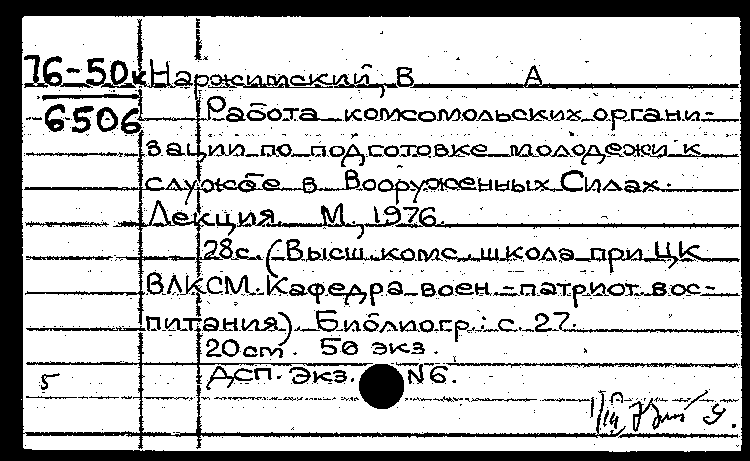 76-50к Наржимский, В А
6506 Работа комсомольских органи-
зации по подготовке молодежи к
службе в Вооруженных Силах.
Лекция. М., 1976.
28с. (Высш. комс. школа при ЦК
ВЛКСМ. Кафедра воен.-патриот. вос-
питания). Библиогр.: с. 27.
20cm. 50 экз.
5 ДСП. Экз. N6.